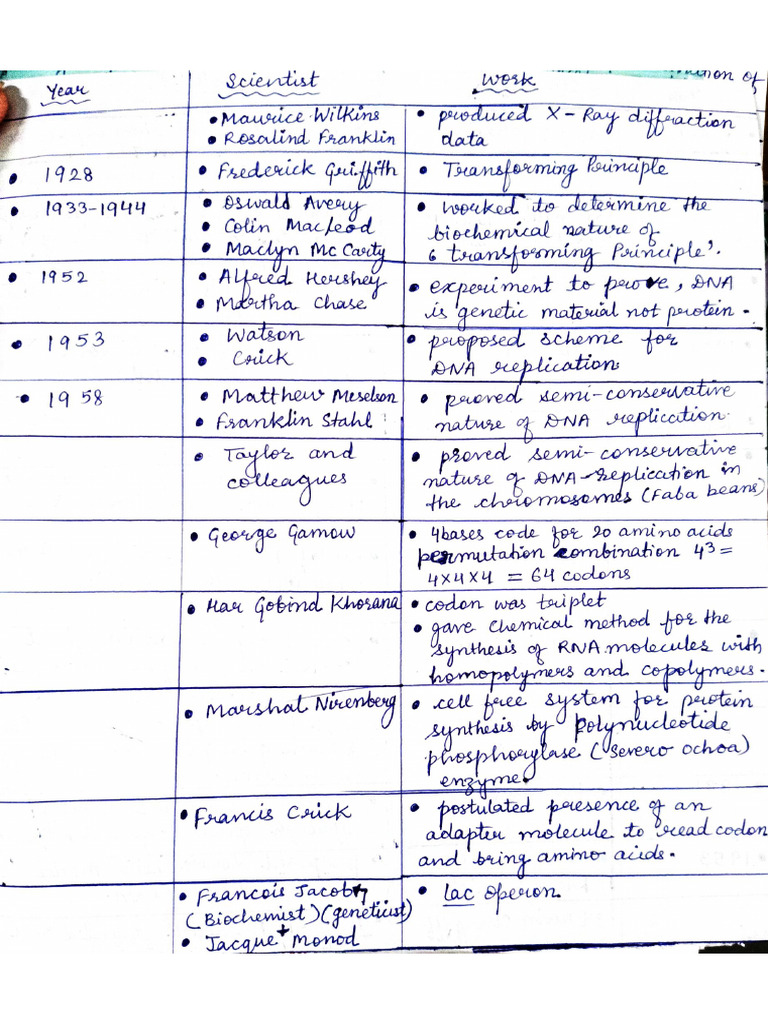 nation of
Year Scientist Work
• Maurice Wilkins • produced X-Ray diffraction
• Rosalind Franklin data
• 1928 • Frederick Griffith • Transforming Principle
• 1933-1944 • Oswald Avery • worked to determine the
• Colin MacLeod biochemical nature of
• Maclyn Mc Carty 6 transforming Principle'.
• 1952 • Alfred Hershey • experiment to prove, DNA
• Martha Chase is genetic material not protein.
• 1953 • Watson • proposed scheme for
• Crick DNA replication
• 1958 • Matthew Meselson • proved semi-conservative
• Franklin Stahl nature of DNA replication.
• Taylor and • proved semi-conservative
colleagues nature of DNA-replication in
the chromosomes (Faba beans)
• George Gamow • 4 bases code for 20 amino acids
permutation combination 4³ =
4×4×4 = 64 codons
• Har Gobind Khorana • codon was triplet
• gave chemical method for the
synthesis of RNA molecules with
homopolymers and copolymers.
• Marshal Nirenberg • cell free system for protein
synthesis by Polynucleotide
phosphorylase (Severo ochoa)
enzyme.
• Francis Crick • postulated presence of an
adapter molecule to read codon
and bring amino acids.
• Francois Jacob • Lac operon
(Biochemist) (geneticist)
• Jacque + Monod